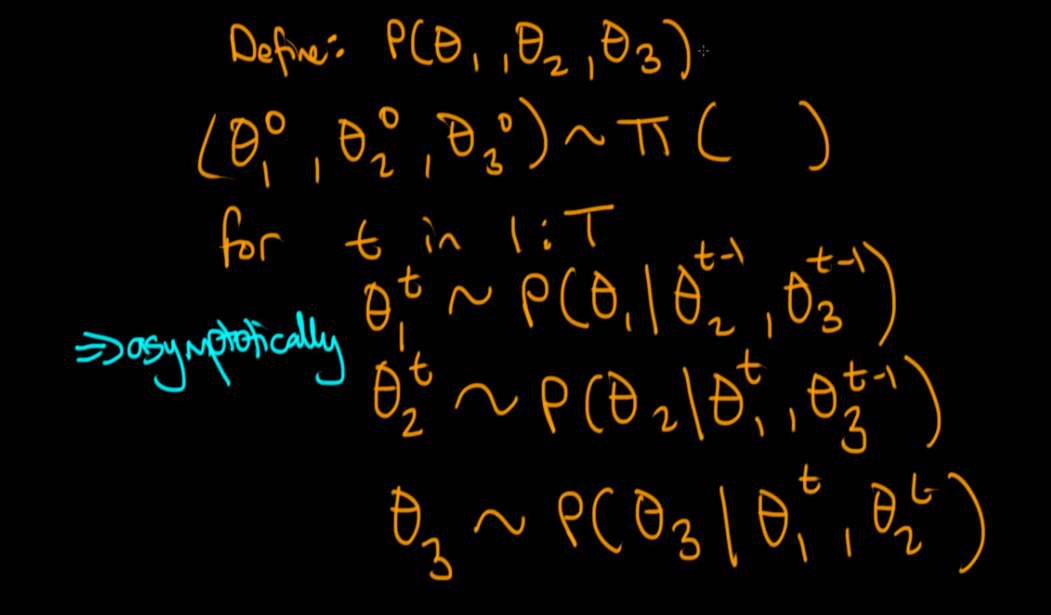 Define: P(θ₁, θ₂, θ₃)
(θ₁⁰, θ₂⁰, θ₃⁰) ~ π( )
for t in 1:T
θ₁ᵗ ~ P(θ₁|θ₂ᵗ⁻¹, θ₃ᵗ⁻¹)
⇒ asymptotically
θ₂ᵗ ~ P(θ₂|θ₁ᵗ, θ₃ᵗ⁻¹)
θ₃ ~ P(θ₃|θ₁ᵗ, θ₂ᵗ)